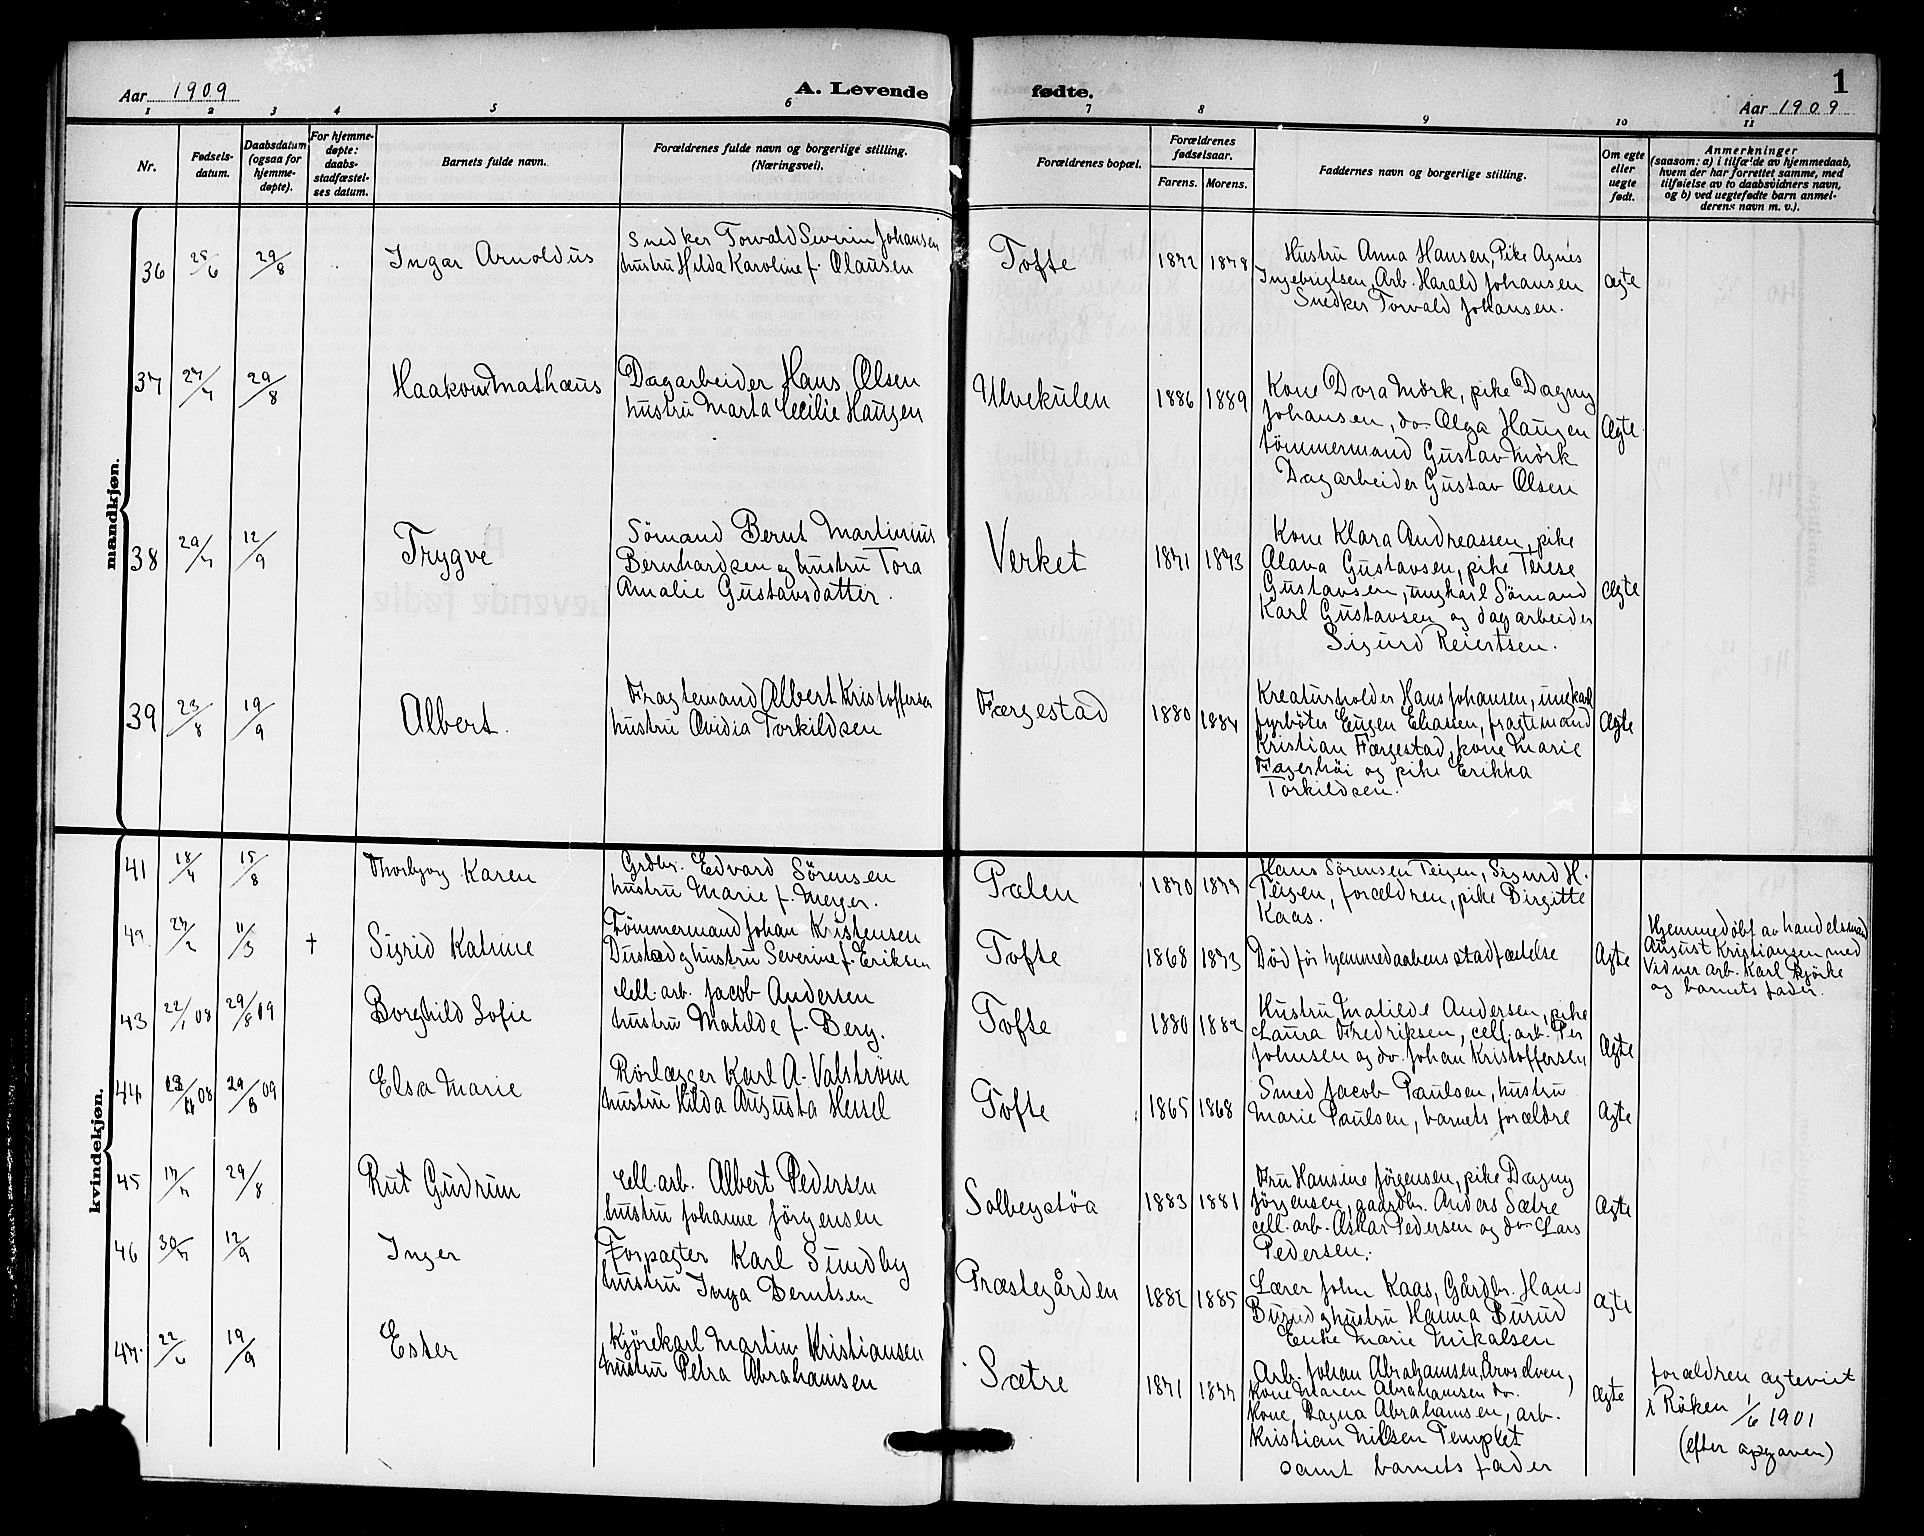 Aar 1909
A. Levende
fødte.
1
Aar 1909
1 2 3 4 5 6 7 8 9 10 11
Nr.
Fødsels-
datum.
Daabsdatum
(ogsaa for
hjemme-
døpte).
For hjemme-
døpte:
daabs-
stadfæstel-
ses datum.
Barnets fulde navn.
Forældrenes fulde navn og borgerlige stilling.
(Næringsvei).
Forældrenes bopæl.
Forældrenes
fødselsaar.
Farens.
Morens.
Faddernes navn og borgerlige stilling.
Om egte
eller
uegte
født.
Anmerkninger
(saasom: a) i tilfælde av hjemmedaab,
hvem der har forrettet samme, med
tilføielse av to daabsvidners navn,
og b) ved uegtefødte barn anmel-
derens navn m. v.).
mandkjøn.
36 25/6 29/8 Ingar Arnoldus
Snedker Torvald Severin Johansen
hustru Hilda Karoline f. Olausen
Tofte 1872 1878
Hustru Anna Hansen, Pike Agnes
Ingebrigtsen, Arb. Harald Johansen
Snedker Torvald Johansen.
Ægte
37 27/7 29/8 Haakon Mathæus
Dagarbeider Hans Olsen
hustru Marta Cecilie Haugen
Ulvekulen 1886 1889
Kone Dora Mörk, pike Dagny
Johansen, do Olga Haugen
tömmermand Gustav Mörk
Dagarbeider Gustav Olsen
Ægte
38 29/7 12/9 Trygve
Sömand Bernt Martinius
Bernhardsen og hustru Tora
Amalie Gustavsdatter.
Verket 1871 1873
Kone Klara Andreassen, pike
Alava Gustavsen, pike Terese
Gustavsen, ungkarl Sömand
Karl Gustavsen og dagarbeider
Sigurd Reiertsen.
Ægte
39 23/8 19/9 Albert.
Fragtemand Albert Kristoffersen
hustru Ovidia Torkildsen
Færgestad 1880 1884
Kreaturholder Hans Johansen, ungkarl
fyrböter Eugen Eliasen, fragtemand
Kristian Færgestad, kone Marie
Fagerhöi og pike Erikka
Torkildsen.
Ægte
kvindekjøn.
41 18/4 15/8 Thorbjørg Karen
Grdbr. Edvard Sörensen
hustru Marie f. Meyer.
Pælen 1870 1877
Hans Sörensen Teigen, Sigurd H.
Teigen, forældren, pike Birgitte
Kaas.
49 27/2 11/3 + Sigrid Katrine
Tömmermand Johan Kristensen
Dustad og hustru Severine f. Eriksen
Tofte 1868 1873
Död för hjemmedaabens stadfæstelse
Ægte
Hjemmedöbt av handelsmand
August Kristiansen med
Vidner arb. Karl Bjørke
og barnets fader.
43 22/1 08 29/8 09 Borghild Sofie
Cell. arb. Jacob Andersen
hustru Matilde f. Berg.
Tofte 1880 1882
Hustru Matilde Andersen, pike
Laura Fredriksen, cell. arb. Per
Johnsen og do. Johan Kristoffersen
Ægte
44 08 29/8 09 Elsa Marie
Rörlægger Karl A. Valström
hustru Hilda Augusta Hessel
Tofte 1865 1868
Smed Jacob Paulsen, hustru
Marie Paulsen, barnets forældre
Ægte
45 17/7 29/8 Rut Gudrun
Cell. arb. Albert Pedersen
hustru Johanne Jörgensen
Solbergstøa 1883 1881
Fru Hansine Jörgensen, pike Dagny
Jörgensen, gaardbr. Anders Sætre
cell. arb. Oskar Pedersen og do Lars
Pedersen.
Ægte
46 30/7 12/9 Inger
Forpagter Karl Sundby
hustru Inga Berntsen
Præstegården 1882 1885
Lærer John Kaas, Gårdbr. Hans
Burud og hustru Hanna Burud
Enke Marie Mikalsen
Ægte
47. 22/6 19/9 Ester
Kjörekarl Martin Kristiansen
hustru Petra Abrahamsen
Sætre 1871 1877
Arb. Johan Abrahamsen,
Kone Maren Abrahamsen do.
Kone Ragna Abrahamsen, arb.
Kristian Nilsen
samt barnets fader
Ægte
forældren ægteviet
i Röken 1/6 1901
(efter opgaven)